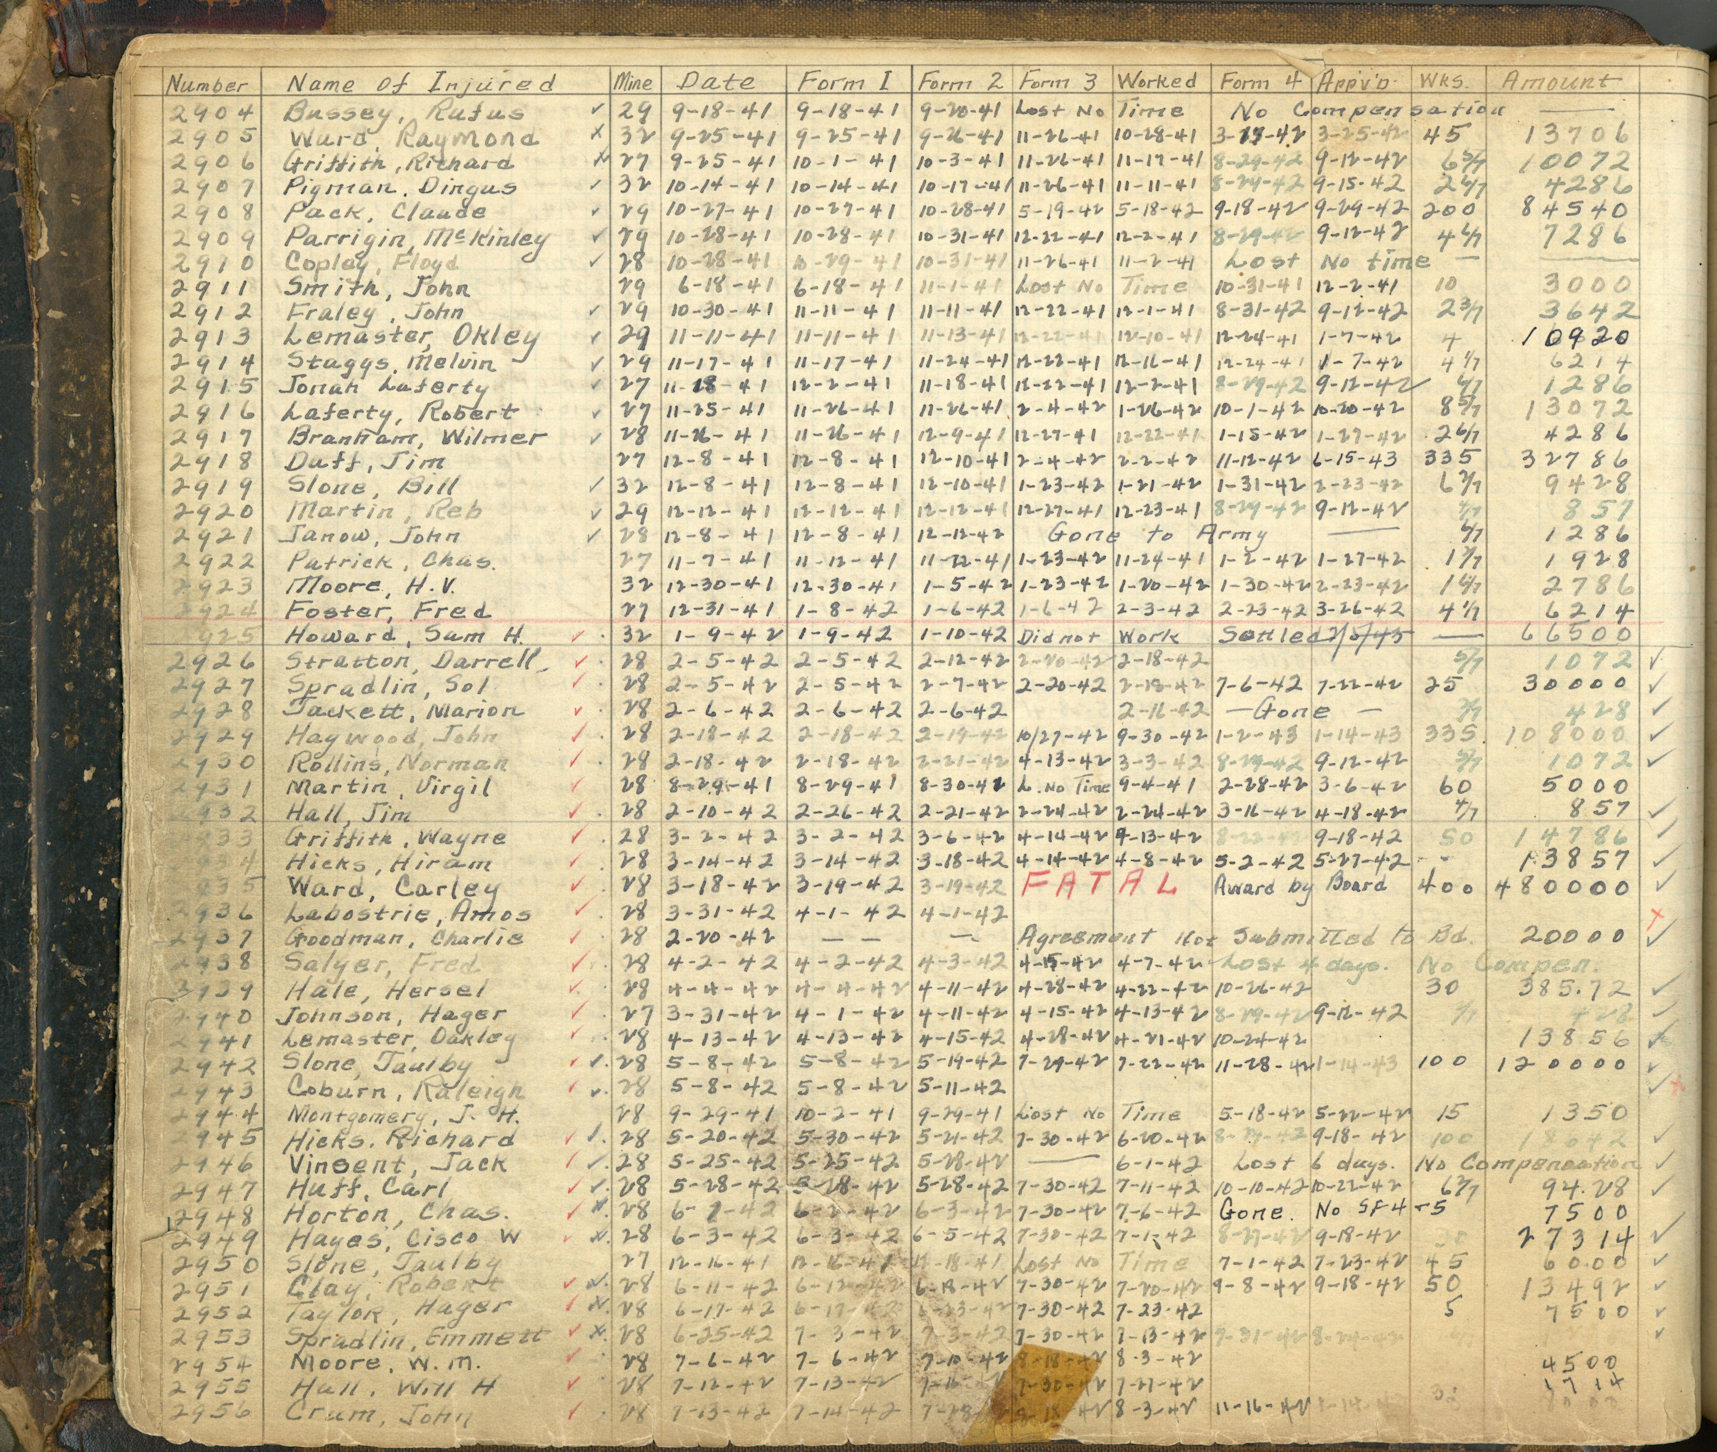 Number Name of Injured Mine Date Form I Form 2 Form 3 Worked Form 4 Appv'd. Wks. Amount
2904 Bussey, Rufus ✓ 29 9-18-41 9-18-41 9-20-41 Lost No Time No Compensation —
2905 Ward, Raymond x 32 9-25-41 9-25-41 9-26-41 11-26-41 10-28-41 3-25-42 45 13706
2906 Griffith, Richard 27 9-25-41 10-1-41 10-3-41 11-26-41 11-17-41 8-29-42 9-12-42 6 5/7 10072
2907 Pigman, Dingus ✓ 32 10-14-41 10-14-41 10-17-41 11-26-41 11-11-41 8-29-42 9-15-42 2 6/7 4286
2908 Pack, Claude ✓ 29 10-27-41 10-27-41 10-28-41 5-19-42 5-18-42 9-18-42 9-29-42 200 84540
2909 Parrigin, McKinley ✓ 29 10-28-41 10-28-41 10-31-41 12-22-41 12-2-41 8-29-42 9-12-42 4 6/7 7286
2910 Copley, Floyd ✓ 28 10-28-41 10-29-41 10-31-41 11-26-41 11-2-41 Lost No time —
2911 Smith, John 29 6-18-41 6-18-41 11-1-41 Lost No Time 10-31-41 12-2-41 10 3000
2912 Fraley, John ✓ 29 10-30-41 11-11-41 11-11-41 12-22-41 12-1-41 8-31-42 9-12-42 2 3/7 3642
2913 Lemaster, Okley ✓ 29 11-11-41 11-11-41 11-13-41 12-22-41 12-10-41 12-24-41 1-7-42 4 10920
2914 Staggs, Melvin ✓ 29 11-17-41 11-17-41 11-24-41 12-22-41 12-16-41 12-24-41 1-7-42 4 1/7 6214
2915 Jonah Laferty ✓ 27 11-18-41 12-2-41 11-18-41 12-22-41 12-2-41 8-29-42 9-12-42 6/7 1286
2916 Laferty, Robert ✓ 27 11-25-41 11-26-41 11-26-41 2-4-42 1-26-42 10-1-42 10-20-42 8 5/7 13072
2917 Branham, Wilmer ✓ 28 11-26-41 11-26-41 12-9-41 12-27-41 12-22-41 1-15-42 1-27-42 2 6/7 4286
2918 Duff, Jim 27 12-8-41 12-8-41 12-10-41 2-4-42 2-2-42 11-12-42 6-15-43 335 32786
2919 Slone, Bill ✓ 32 12-8-41 12-8-41 12-10-41 1-23-42 1-21-42 1-31-42 2-23-42 6 2/7 9428
2920 Martin, Reb ✓ 29 12-12-41 12-12-41 12-12-41 12-27-41 12-23-41 8-29-42 9-12-42 857
2921 Janow, John ✓ 28 12-8-41 12-8-41 12-12-42 Gone to Army — 6/7 1286
2922 Patrick, Chas. 27 11-7-41 11-12-41 11-22-41 1-23-42 11-24-41 1-2-42 1-27-42 1 2/7 1928
2923 Moore, H.V. 32 12-30-41 12-30-41 1-5-42 1-23-42 1-20-42 1-30-42 2-23-42 1 6/7 2786
2924 Foster, Fred 27 12-31-41 1-8-42 1-6-42 1-6-42 2-3-42 2-23-42 3-26-42 4 1/7 6214
2925 Howard, Sam H. ✓ 32 1-9-42 1-9-42 1-10-42 Did not Work Settled — 66500
2926 Stratton, Darrell ✓ 28 2-5-42 2-5-42 2-12-42 2-20-42 2-18-42 5/7 1072 ✓
2927 Spradlin, Sol ✓ 28 2-5-42 2-5-42 2-7-42 2-20-42 2-18-42 7-6-42 7-22-42 25 30000 ✓
2928 Jackett, Marion ✓ 28 2-6-42 2-6-42 2-6-42 2-16-42 — Gone — 428 ✓
2929 Haywood, John ✓ 28 2-18-42 2-18-42 2-19-42 10/27-42 9-30-42 1-2-43 1-14-43 335 108000 ✓
2930 Rollins, Norman ✓ 28 2-18-42 2-18-42 2-21-42 4-13-42 3-3-42 8-29-42 9-12-42 5/7 1072 ✓
2931 Martin, Virgil ✓ 28 8-29-41 8-29-41 8-30-42 L. No Time 9-4-41 2-28-42 3-6-42 60 5000
2932 Hall, Jim ✓ 28 2-10-42 2-26-42 2-21-42 2-24-42 2-24-42 3-16-42 4-18-42 4/7 857 ✓
2933 Griffith, Wayne ✓ 28 3-2-42 3-2-42 3-6-42 4-14-42 4-13-42 9-18-42 50 14786 ✓
2934 Hicks, Hiram ✓ 28 3-14-42 3-14-42 3-18-42 4-14-42 4-8-42 5-2-42 5-27-42 13857 ✓
2935 Ward, Carley ✓ 28 3-18-42 3-19-42 3-19-42 FATAL Award by Board 400 480000 ✓
2936 Labostrie, Amos ✓ 28 3-31-42 4-1-42 4-1-42 x
2937 Goodman, Charlie ✓ 28 2-20-42 — — — Agreement Not Submitted to Bd. 20000 ✓
2938 Salyer, Fred ✓ 28 4-2-42 4-2-42 4-3-42 4-15-42 4-7-42 Lost 4 days. No Compen.
2939 Hale, Hersel ✓ 28 4-4-42 4-4-42 4-11-42 4-28-42 4-22-42 10-26-42 30 385.72 ✓
2940 Johnson, Hager ✓ 27 3-31-42 4-1-42 4-11-42 4-15-42 4-13-42 8-29-42 9-12-42 428 ✓
2941 Lemaster, Oakley ✓ 28 4-13-42 4-13-42 4-15-42 4-28-42 4-21-42 10-24-42 13856
2942 Slone, Taulby ✓ ✓ 28 5-8-42 5-8-42 5-19-42 7-29-42 7-22-42 11-28-42 1-14-43 100 120000 ✓
2943 Coburn, Raleigh ✓ ✓ 28 5-8-42 5-8-42 5-11-42 ✓ x
2944 Montgomery, J. H. 28 9-29-41 10-2-41 9-29-41 Lost No Time 5-18-42 5-22-42 15 1350
2945 Hicks, Richard ✓ ✓ 28 5-20-42 5-30-42 5-21-42 7-30-42 6-20-42 9-18-42 100 18642 ✓
2946 Vinsent, Jack ✓ ✓ 28 5-25-42 5-25-42 5-28-42 — 6-1-42 Lost 6 days. No Compensation ✓
2947 Huff, Carl ✓ ✓ 28 5-28-42 5-28-42 5-28-42 7-30-42 7-11-42 10-10-42 10-22-42 6 2/7 94.28 ✓
2948 Horton, Chas. ✓ 28 6-2-42 6-2-42 6-3-42 7-30-42 7-6-42 Gone. No SF4-5 7500
2949 Hayes, Cisco W ✓ 28 6-3-42 6-3-42 6-5-42 7-30-42 8-27-42 9-18-42 27314 ✓
2950 Slone, Taulby 27 12-16-41 12-16-41 12-18-41 Lost No Time 7-1-42 7-23-42 45 6000 ✓
2951 Clay, Robert ✓ 28 6-11-42 6-12-42 6-18-42 7-30-42 7-20-42 9-8-42 9-18-42 50 13492 ✓
2952 Taylor, Hager ✓ 28 6-17-42 6-17-42 6-23-42 7-30-42 7-23-42 5 7500 ✓
2953 Spradlin, Emmett ✓ 28 6-25-42 7-3-42 7-3-42 7-30-42 7-13-42 ✓
2954 Moore, W. M. ✓ 28 7-6-42 7-6-42 7-10-42 8-18-42 8-3-42 4500
2955 Hall, Will H ✓ 28 7-12-42 7-13-42 7-30-42 7-27-42 1714
2956 Crum, John ✓ 28 7-13-42 7-14-42 8-3-42 11-16-42